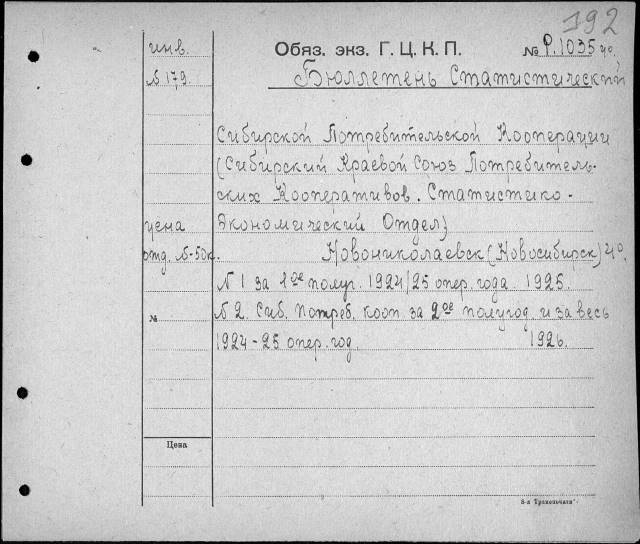 192
инв. Обяз. экз. Г. Ц. К. П. № Р.1035 40.
№ 179 Бюллетень Статистический
Сибирской Потребительской Кооперации
(Сибирский Краевой Союз Потребитель-
ских Кооперативов. Статистико-
цена Экономический Отдел)
отд. №-50к. Новониколаевск (Новосибирск) 4°.
№ 1 за 1ое полуг. 1924/25 опер. года 1925.
№ № 2. Сиб. Потреб. кооп за 2ое полугод. и за весь
1924-25 опер. год. 1926.
Цена
8-я Транспечати